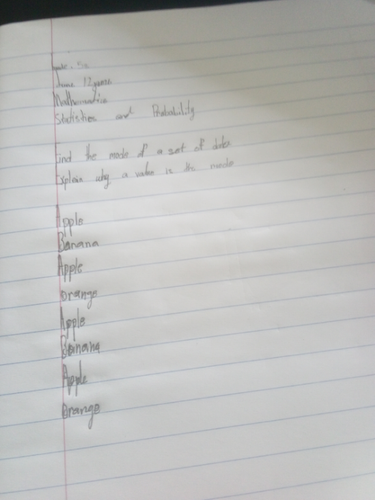 12 years
Mathematics
Statistics and Probability
Find the mode of a set of data
Explain why a value is the mode
Apple
Banana
Apple
Orange
Apple
Banana
Apple
Orange